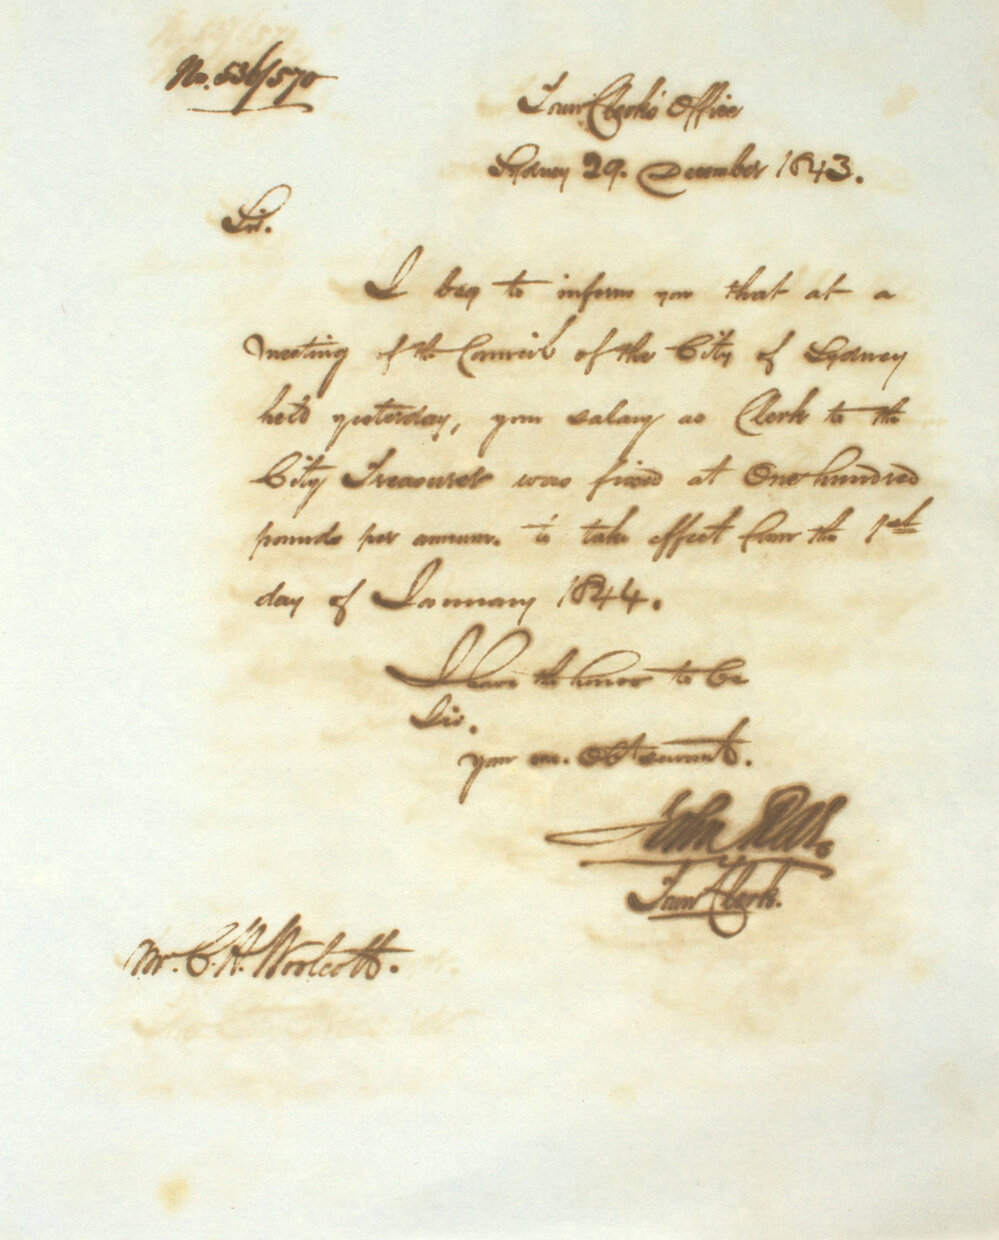 No. 536/570
Town Clerk's Office
Sydney 29. December 1843.
Sir.
I beg to inform you that at a
Meeting of the Council of the City of Sydney
held yesterday, your salary as Clerk to the
City Treasurer was fixed at One hundred
pounds per annum. to take effect from the 1st
day of January 1844.
I have the honor to be
Sir.
your Obt servant.
John
Town Clerk.
Mr. C. H. Woolcott.